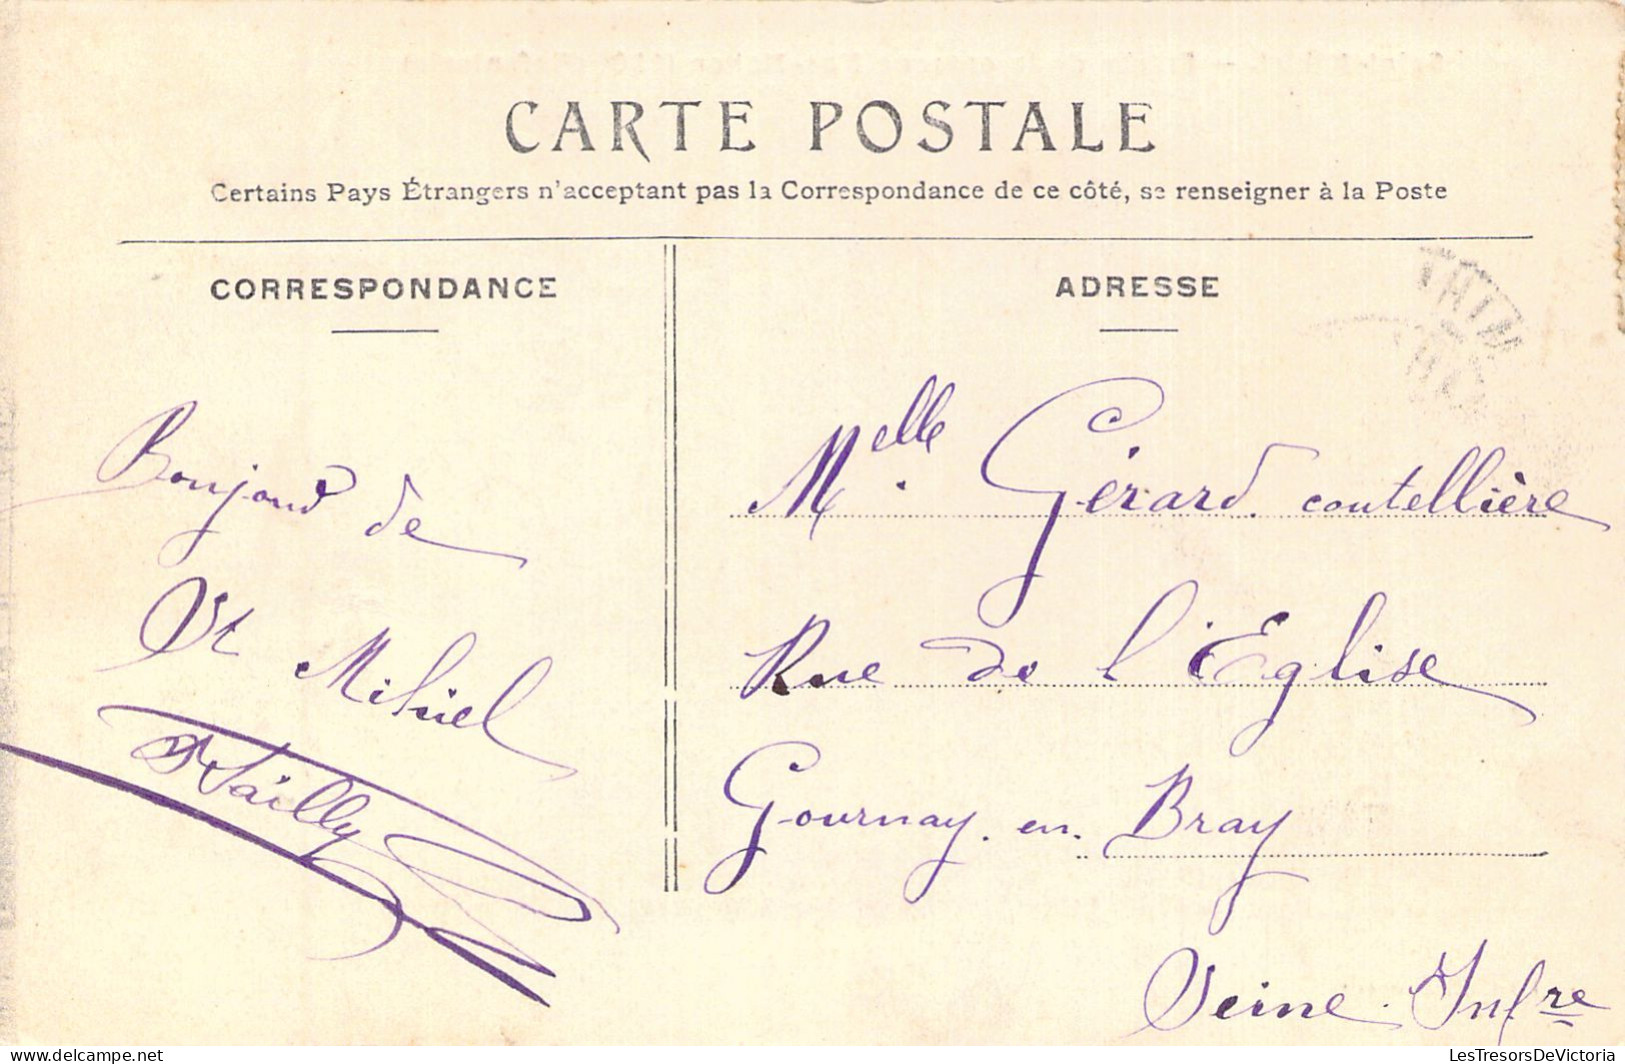 CARTE POSTALE
Certains Pays Étrangers n'acceptant pas la Correspondance de ce côté, se renseigner à la Poste
CORRESPONDANCE
Bonjour de
St Mihiel
ADRESSE
Melle. Gérard. coutellière
Rue de l'Eglise
Gournay. en. Bray
Seine. Infre
LesTresorsDeVictoria